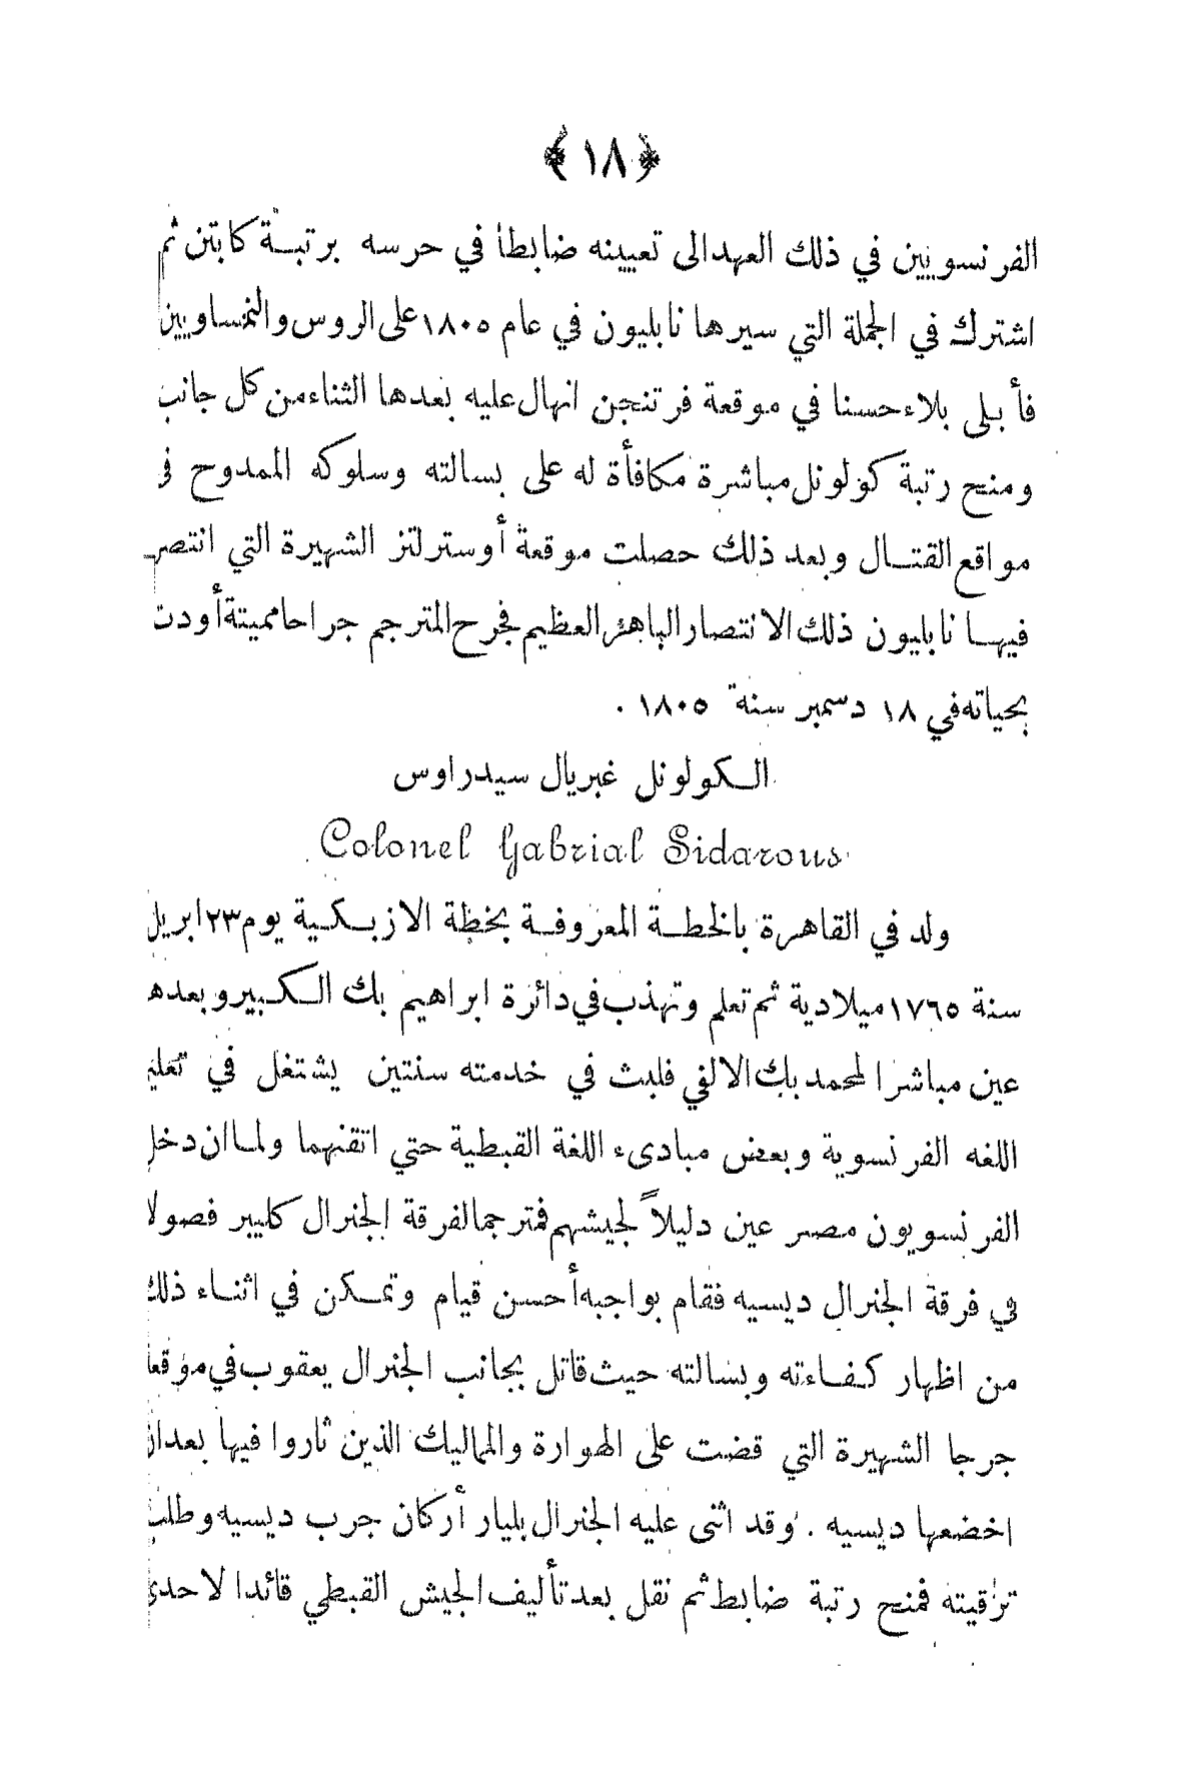 ﴿ ١٨ ﴾
الفرنسويين في ذلك العهدالى تعيينه ضابطا في حرسه برتبة كابتن ثم
اشترك في الحملة التي سيرها نابليون في عام ١٨٠٥ على الروس والنمساويين
فأبلى بلاءحسنا في موقعة فرتنجن انهال عليه بعدها الثناءمن كل جانب
ومنح رتبة كولونل مباشرة مكافأة له على بسالته وسلوكه الممدوح فى
مواقع القتال وبعد ذلك حصلت موقعة أوسترلتز الشهيرة التي انتصر
فيها نابليون ذلك الانتصار الباهر العظيم فجرح المترجم جراحا مميتة أودت
بحياته في ١٨ دسمبر سنة ١٨٠٥ .
الكولونل غبريال سيدراوس
Colonel Gabrial Sidarous
ولد في القاهرة بالخطة المعروفة بخطة الازبكية يوم ٢٣ ابريل
سنة ١٧٦٥ ميلادية ثم تعلم وتهذب في دائرة ابراهيم بك الكبير وبعدها
عين مباشرا لمحمد بك الالفي فلبث في خدمته سنتين يشتغل في تعليم
اللغه الفرنسوية وبعض مبادىء اللغة القبطية حتي اتقنهما ولما ان دخل
الفرنسويون مصر عين دليلاً لجيشهم فمترجما لفرقة الجنرال كليبر فصولا
في فرقة الجنرال ديسيه فقام بواجبه أحسن قيام وتمكن في اثناء ذلك
من اظهار كفاءته وبسالته حيث قاتل بجانب الجنرال يعقوب في موقعة
جرجا الشهيرة التي قضت على الهوارة والمماليك الذين ثاروا فيها بعدان
اخضعها ديسيه . وقد اثنى عليه الجنرال بليار أركان حرب ديسيه وطلب
ترقيته فمنح رتبة ضابط ثم نقل بعد تأليف الجيش القبطي قائدا لاحدى